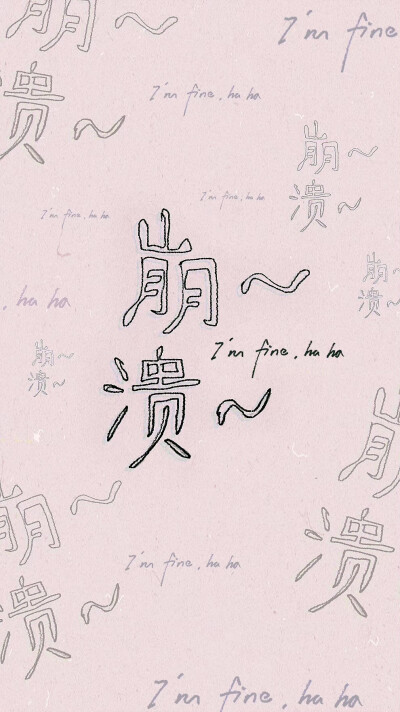 崩~
I'm fine
溃~
I'm fine, ha ha
崩~
溃~
I'm fine, ha ha
I'm fine, ha ha
崩~
I'm fine, ha ha
溃~
崩~
溃~
, ha ha
崩~
溃~
崩
溃
崩~
溃~
I'm fine, ha ha
I'm fine, ha ha